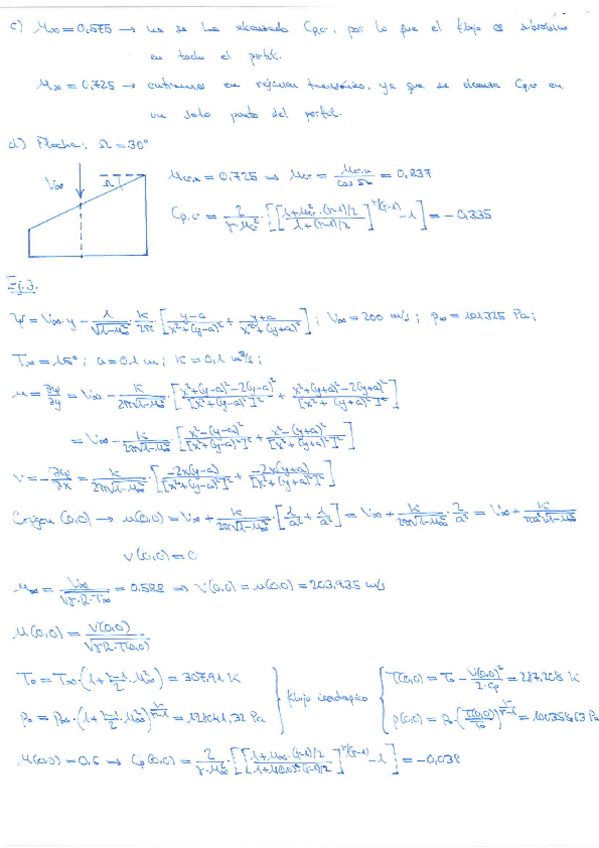 c) M∞ = 0,575 → no se ha alcanzado Cp,cr, por lo que el flujo es subsónico
en todo el perfil.
M∞ = 0,725 → entramos en régimen transónico, ya que se alcanza Cp,cr en
un solo punto del perfil.
d) Flecha: Ω = 30°
V∞ Ω
Mcr,n = 0,725 ⇒ Mcr = Mcr,n / cos Ω = 0,837
Cp,cr = 2/(γ·Mcr²) · [[(1+Mcr²·(γ-1)/2)/(1+(γ-1)/2)]^(γ/(γ-1)) - 1] = -0,335
Ej.3.
ψ = V∞·y - 1/√(1-M∞²) · K/2π · [(y-a)/(x²+(y-a)²) + (y+a)/(x²+(y+a)²)] ; V∞ = 200 m/s ; p∞ = 101325 Pa ;
T∞ = 15° ; a = 0,1 m ; K = 0,1 m³/s ;
u = ∂ψ/∂y = V∞ - K/(2π√(1-M∞²)) · [(x²+(y-a)²-2(y-a)²)/[x²+(y-a)²]² + (x²+(y+a)²-2(y+a)²)/[x²+(y+a)²]²]
= V∞ - K/(2π√(1-M∞²)) · [(x²-(y-a)²)/[x²+(y-a)²]² + (x²-(y+a)²)/[x²+(y+a)²]²]
v = -∂ψ/∂x = K/(2π√(1-M∞²)) · [-2x(y-a)/[x²+(y-a)²]² + -2x(y+a)/[x²+(y+a)²]²]
Origen (0,0) → u(0,0) = V∞ + K/(2π√(1-M∞²)) · [1/a² + 1/a²] = V∞ + K/(2π√(1-M∞²)) · 2/a² = V∞ + K/(πa²√(1-M∞²))
v(0,0) = 0
M∞ = V∞/√(γ·R·T∞) = 0,588 ⇒ V(0,0) = u(0,0) = 203,935 m/s
M(0,0) = V(0,0)/√(γ·R·T(0,0))
T₀ = T∞·(1+(γ-1)/2·M∞²) = 307,91 K
p₀ = p∞·(1+(γ-1)/2·M∞²)^(γ/(γ-1)) = 128041,32 Pa
flujo isentrópico
T(0,0) = T₀ - V(0,0)²/(2·Cp) = 287,208 K
p(0,0) = p₀·(T(0,0)/T₀)^(γ/(γ-1)) =
M(0,0) = 0,6 → Cp(0,0) = 2/(γ·M∞²) · [[(1+M∞·(γ-1)/2)/(1+M(0,0)²·(γ-1)/2)]^(γ/(γ-1)) - 1] = -0,039